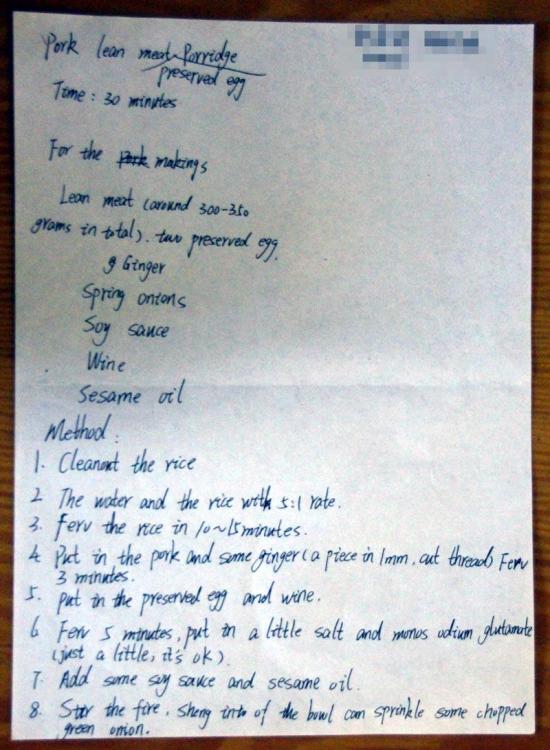 Pork lean meat Porridge
preserved egg
Time : 30 minutes
For the Pork makings
Lean meat (around 300-350
grams in total). two preserved egg.
g Ginger
Spring onions
Soy sauce
Wine
Sesame oil
Method :
1. Cleanout the rice
2. The water and the rice with 5:1 rate.
3. Ferv the rice in 10~15 minutes.
4. Put in the pork and some ginger (a piece in 1mm, cut thread) Ferv
3 minutes.
5. put in the preserved egg and wine.
6. Ferv 5 minutes, put in a little salt and monos odium glutamate
(just a little, it's ok).
7. Add some soy sauce and sesame oil.
8. the fire. sheng into of the bowl can sprinkle some chopped
green onion.